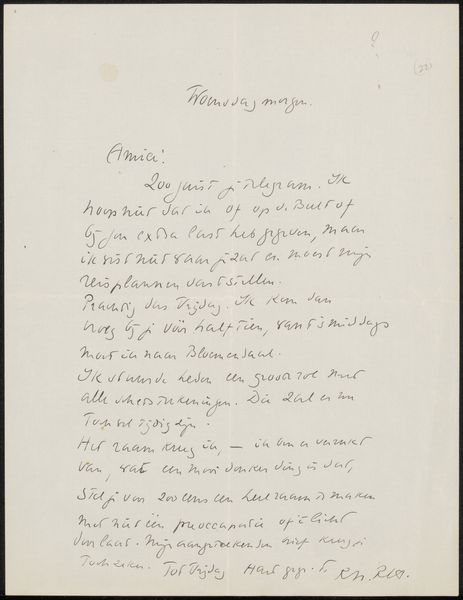 ?
(22)
Woensdag morgen.
Amice!
Zoo juist je telegram. Ik
hoop niet dat ik of op d. Bult of
bij jou extra last heb gegeven, maar
ik wist niet waar je zat en moest mijn
reisplannen vaststellen.
Prachtig dus Vrijdag. Ik kom dan
vroeg bij je vóór half tien, want 's middags
moet ik naar Bloemendaal.
Ik stuurde heden een groote rol met
alle schetsteekeningen. Die zal er nu
toch wel tijdig zijn.
Het raam kreeg ik, — ik ben er verrukt
van, wat een mooi donker ding is dat,
Stel je voor zoo eens een heel raam te maken
met niet één preoccupatie of 't licht
doorlaat. Mijn aangeteekenden brief kreeg je
toch zeker. Tot Vrijdag Hart. gegr. t. t.
R. N. R. H.